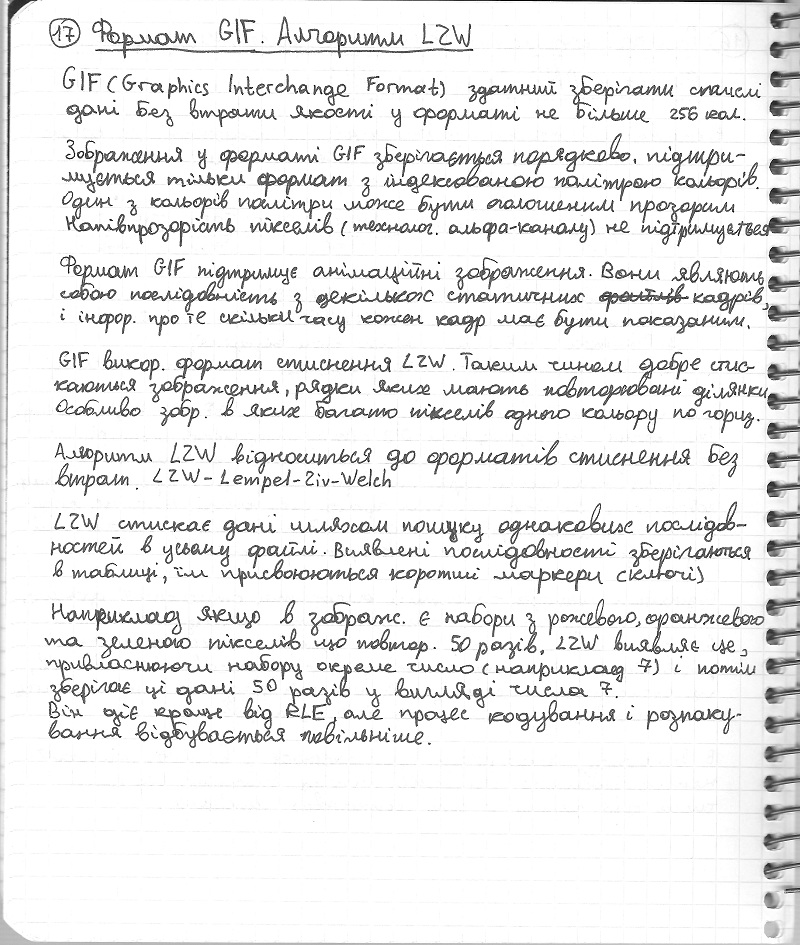 17 Формат GIF. Алгоритм LZW
GIF (Graphics Interchange Format) здатний зберігати стислі
дані без втрати якості у форматі не більше 256 кол.
Зображення у форматі GIF зберігається порядково, підтри-
мується тільки формат з індексованою политрою кольорів.
Один з кольорів политри може бути оголошеним прозорим
Напівпрозорість пікселів (технолог. альфа-каналу) не підтримується
Формат GIF підтримує анімаційні зображення. Вони являють
собою послідовність з декількох статичних файлів кадрів,
і інфор. про те скільки часу кожен кадр має бути показаним.
GIF викор. формат стиснення LZW. Таким чином добре стис-
каються зображення, рядки яких мають повторювані ділянки
Особливо зобр. в яких багато пікселів одного кольору по гориз.
Алгоритм LZW відноситься до форматів стиснення без
втрат. LZW-Lempel-Ziv-Welch
LZW стискає дані шляхом пошуку однакових послідов-
ностей в усьому файлі. Виявлені послідовності зберігаються
в таблиці, їм присвоюються коротші маркери (ключі)
Наприклад якщо в зображ. є набори з рожевого, оранжевого
та зеленого пікселів що повтор. 50 разів, LZW виявляє це,
привласнюючи набору окреме число (наприклад 7) і потім
зберігає ці дані 50 разів у вигляді числа 7.
Він діє краще від RLE, але процес кодування і розпаку-
вання відбувається повільніше.